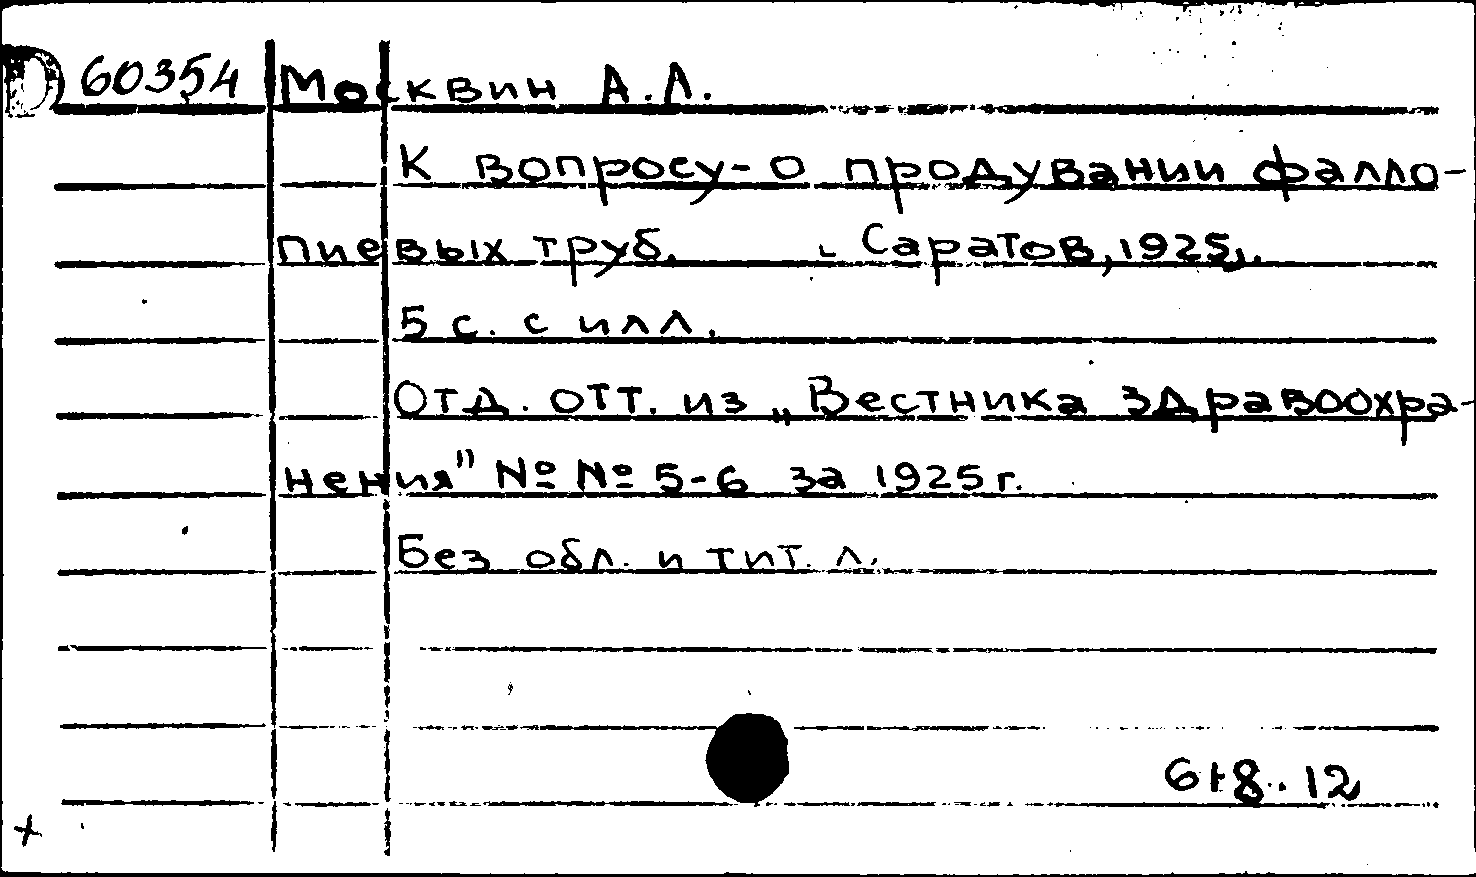 D 60354 Москвин А.Л.
К вопросу-о продувании фалло-
пиевых труб. Саратов, 1925г.
5 с. с илл.
Отд. отт. из „Вестника здравоохра-
нения" №№ 5-6 за 1925 г.
Без обл. и тит. л.
618..12
+